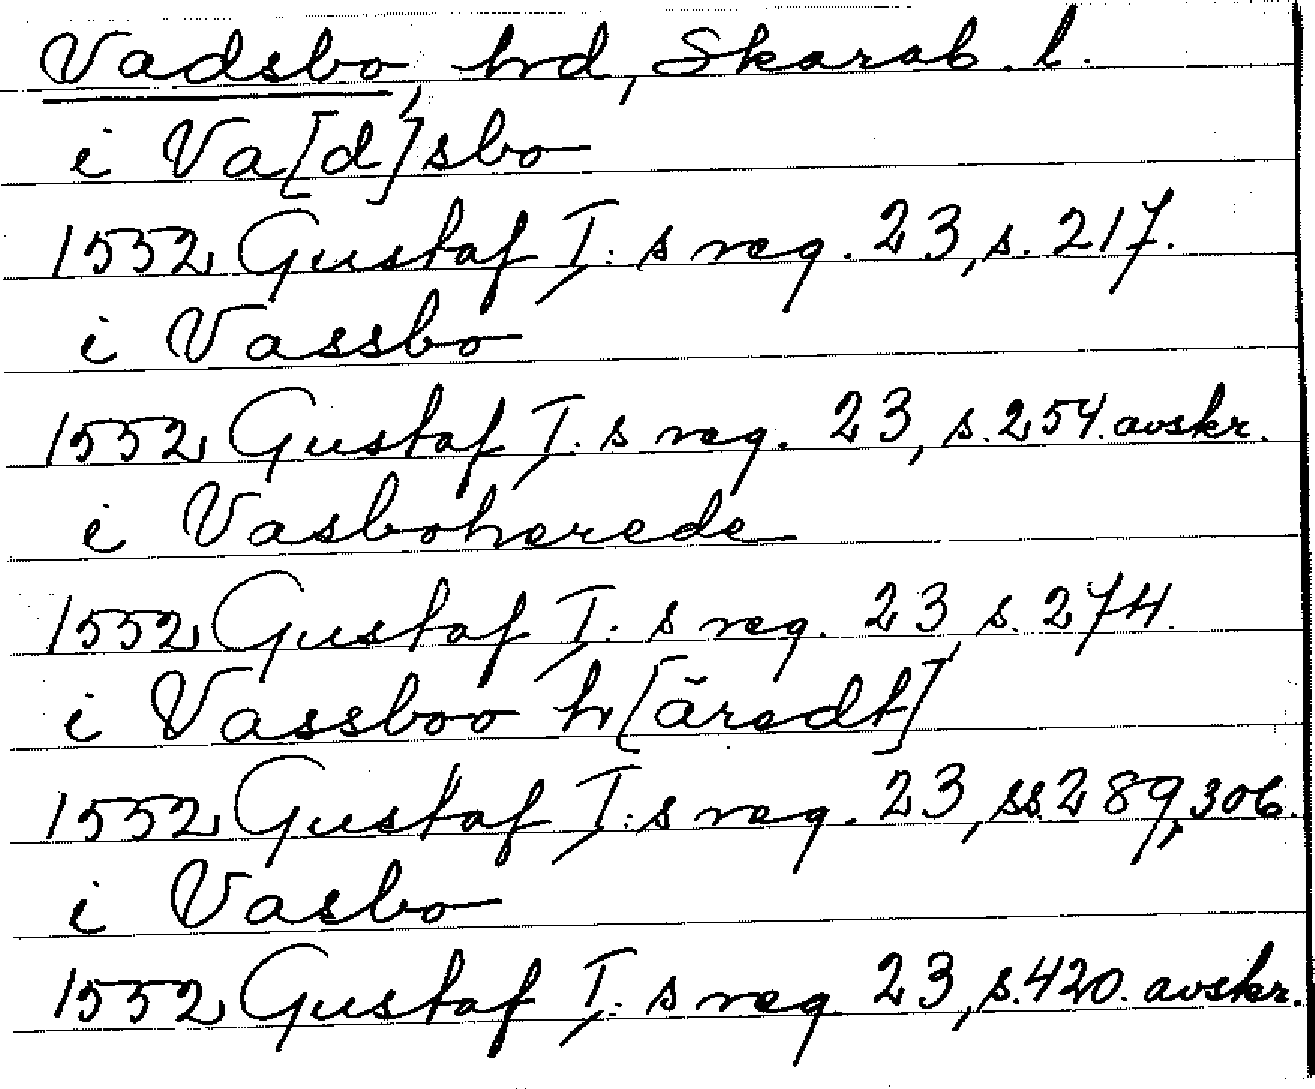 Vadsbo, hrd, Skarab. l.
i Va[d]sbo
1552 Gustaf I:s reg. 23, s. 217.
i Vassbo
1552 Gustaf I:s reg. 23, s. 254. avskr.
i Vasboherede
1552 Gustaf I:s reg. 23, s. 274.
i Vassboo h[äredt]
1552 Gustaf I:s reg. 23, ss. 289, 306.
i Vasbo
1552 Gustaf I:s reg 23, s. 420. avskr.